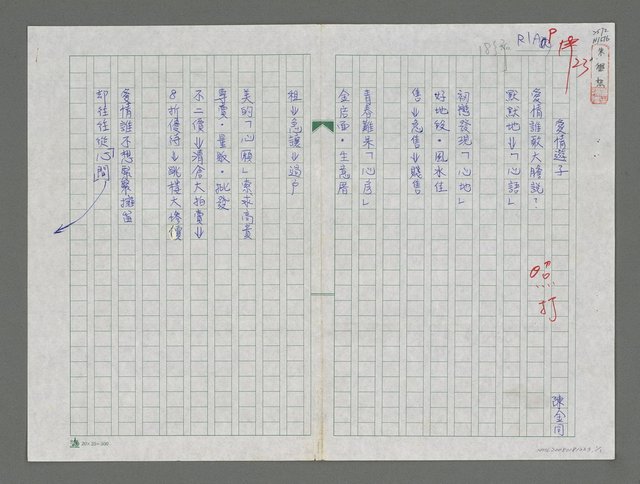 愛情遊子
陳金同
愛情誰敢大膽說?
默默地⇓「心語」
初戀發現「心地」
好地段・風水佳
售⇓急售⇓賤售
青春難來「心房」
金店面・生意厝
租⇓急讓⇓過戶
美的「心願」索求高貴
專賣・量販・批發
不二價⇓清倉大拍賣⇓
8折優待⇓跳樓大慘價
愛情誰不想緊緊擁匿
卻往往從「心間」
照打
20×25=500